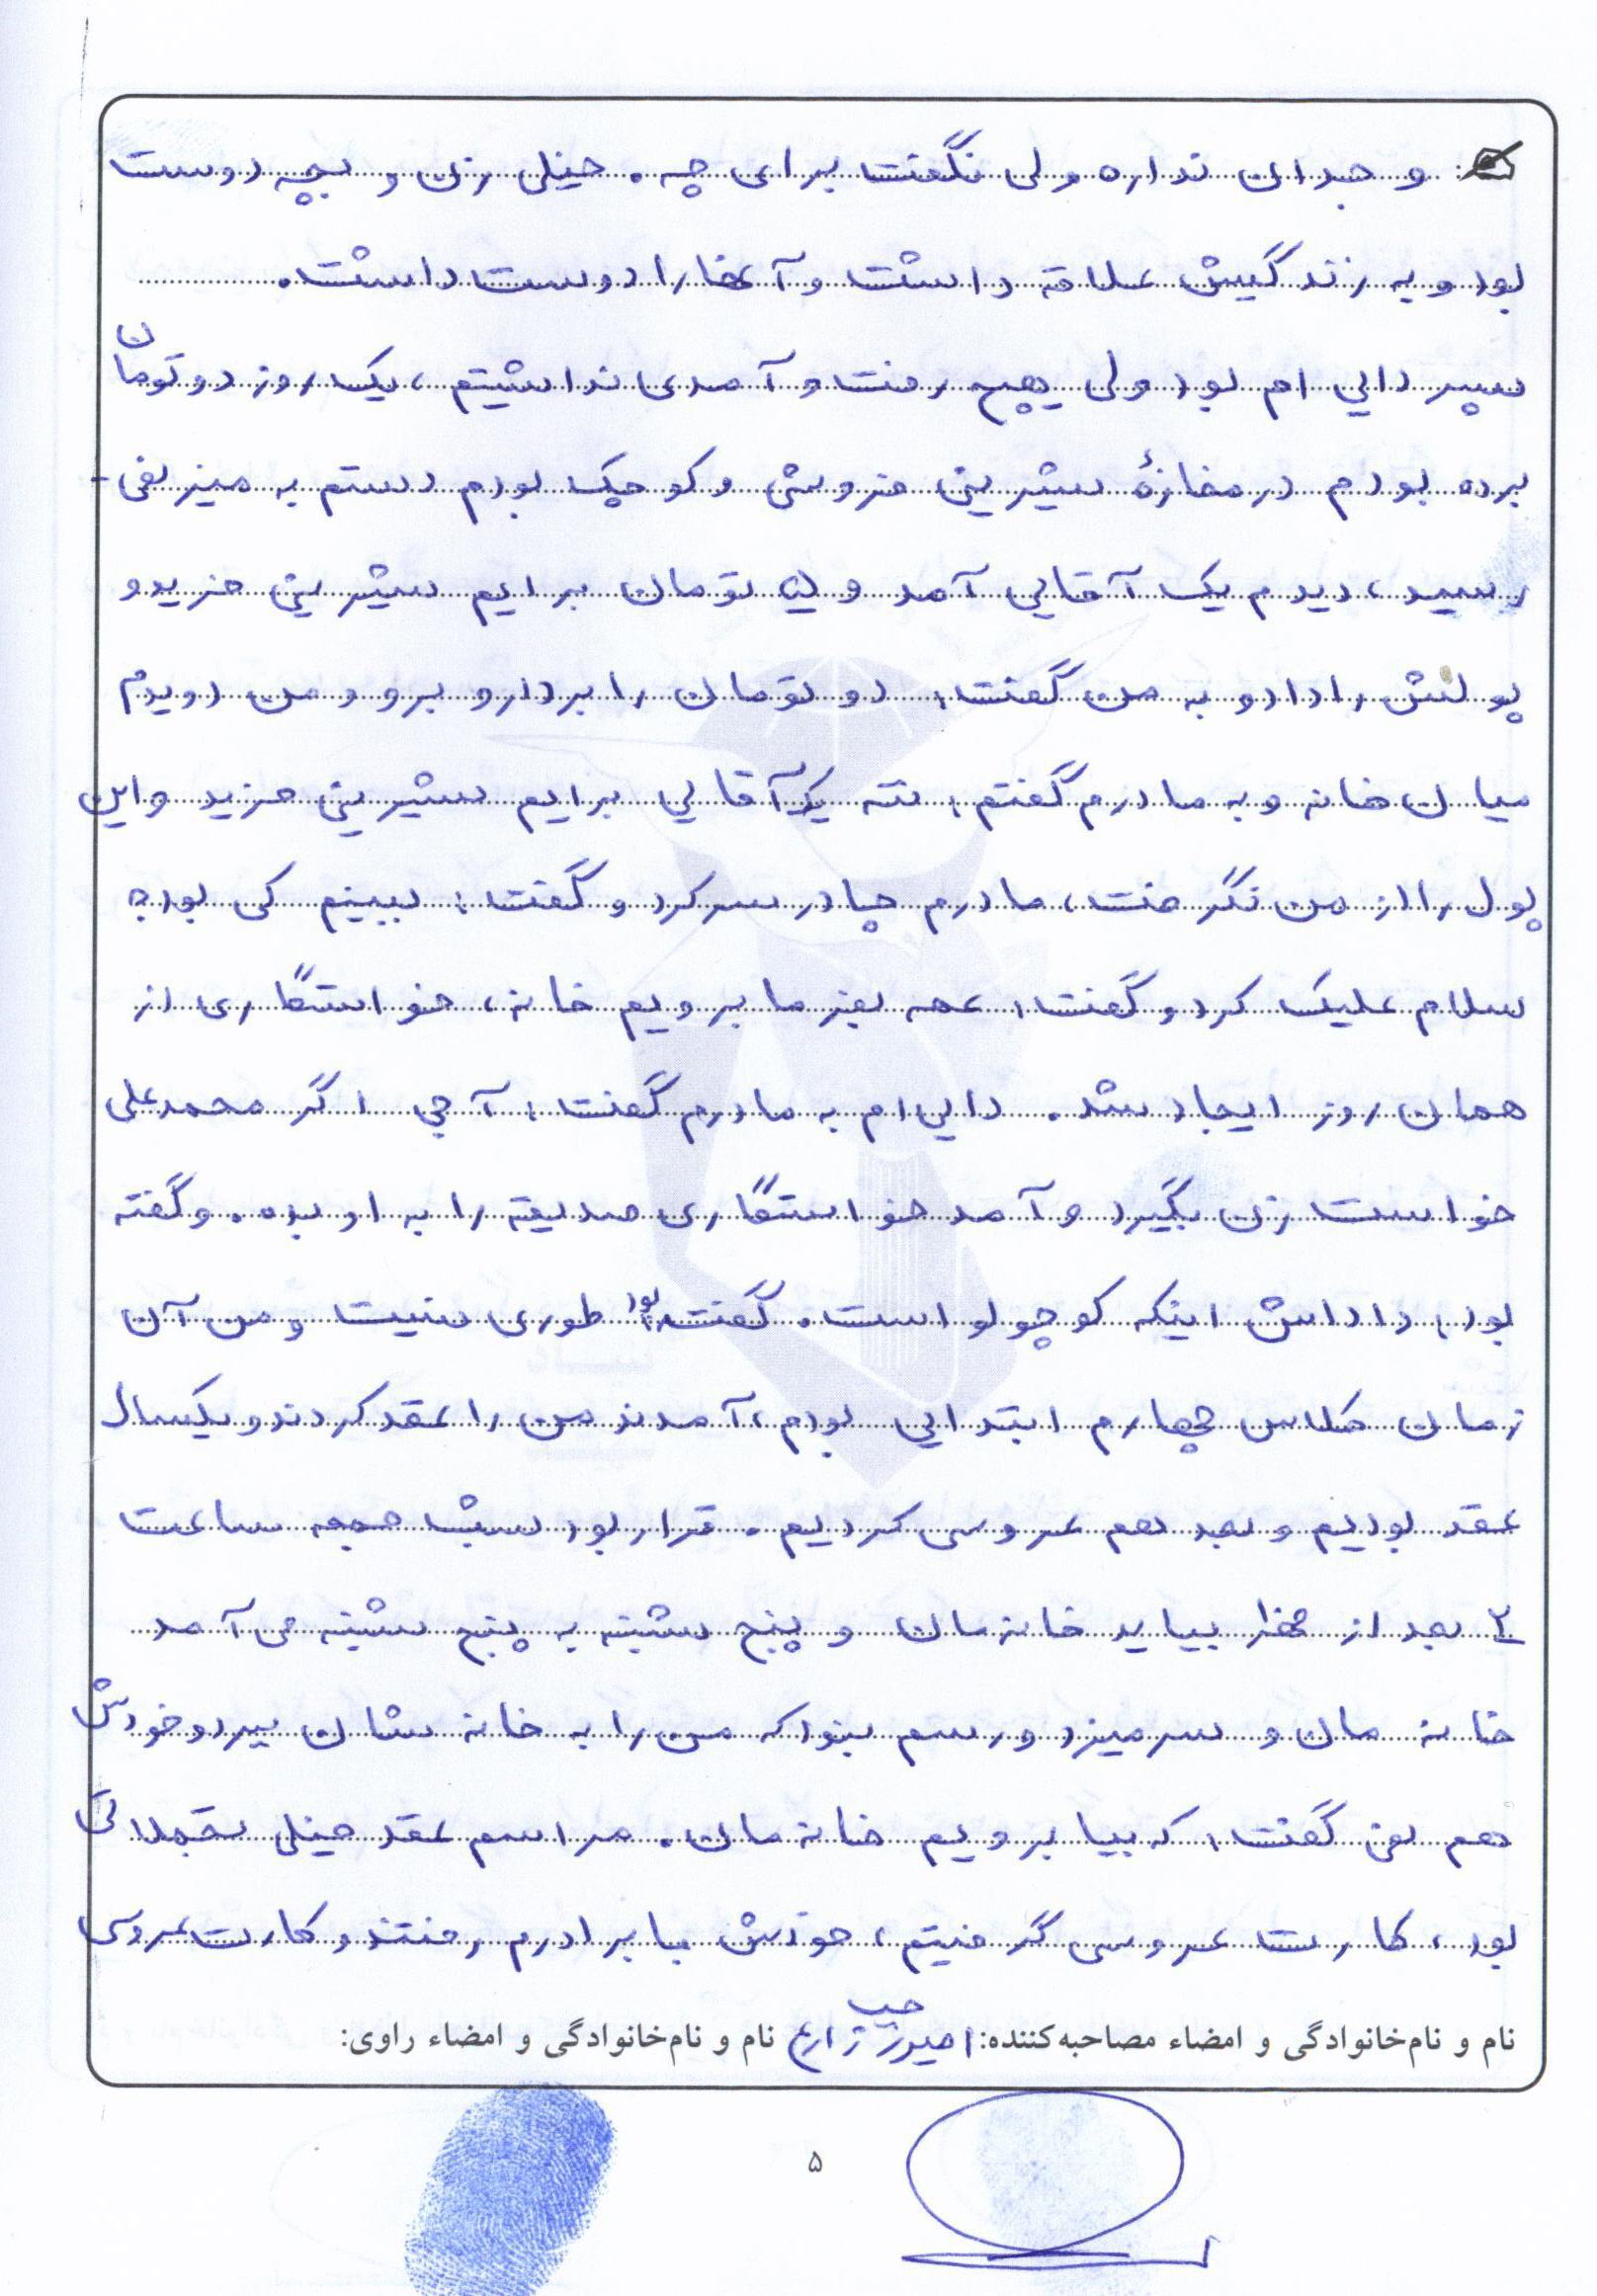 وجدان نداره ولی نگفت برای چه. خیلی زن و بچه دوست
بود و به زندگیش علاقه داشت و آنها را دوست داشت.
پسر دایی ام بود ولی هیچ رفت و آمدی نداشتیم، یک روز دو تومان
برده بودم در مغازهٔ شیرینی فروشی و کوچک بودم دستم به میز نمی-
رسید، دیدم یک آقایی آمد و ۵ تومان برایم شیرینی خرید و
پولش را داد و به من گفت: دو تومان را بردار و برو و من دویدم
میان خانه و به مادرم گفتم: ننه یک آقایی برایم شیرینی خرید و این
پول را از من نگرفت، مادرم چادر سر کرد و گفت: ببینم کی بوده
سلام علیک کرد و گفت: عمه بفرما برویم خانه، خواستگاری از
همان روز ایجاد شد. دایی ام به مادرم گفت: آجی اگر محمدعلی
خواست زن بگیرد و آمد خواستگاری صدیقه را به او بده. و گفته
بود: داداش اینکه کوچولو است. گفته بود: طوری نیست و من آن
زمان کلاس چهارم ابتدایی بودم، آمدند من را عقد کردند و یکسال
عقد بودیم و بعد هم عروسی کردیم. قرار بود شب جمعه ساعت
۲ بعد از ظهر بیاید خانه مان و پنج شنبه به پنج شنبه می آمد
خانه مان و سر میزد و رسم نبود که من را به خانه شان ببرد و خودش
هم نمی گفت: که بیا برویم خانه مان. مراسم عقد خیلی تجملاتی
بود، کارت عروسی گرفتیم، خودش با برادرم رفتند و کارت عروسی
نام و نام‌خانوادگی و امضاء مصاحبه‌کننده: نام و نام‌خانوادگی و امضاء راوی:
۵